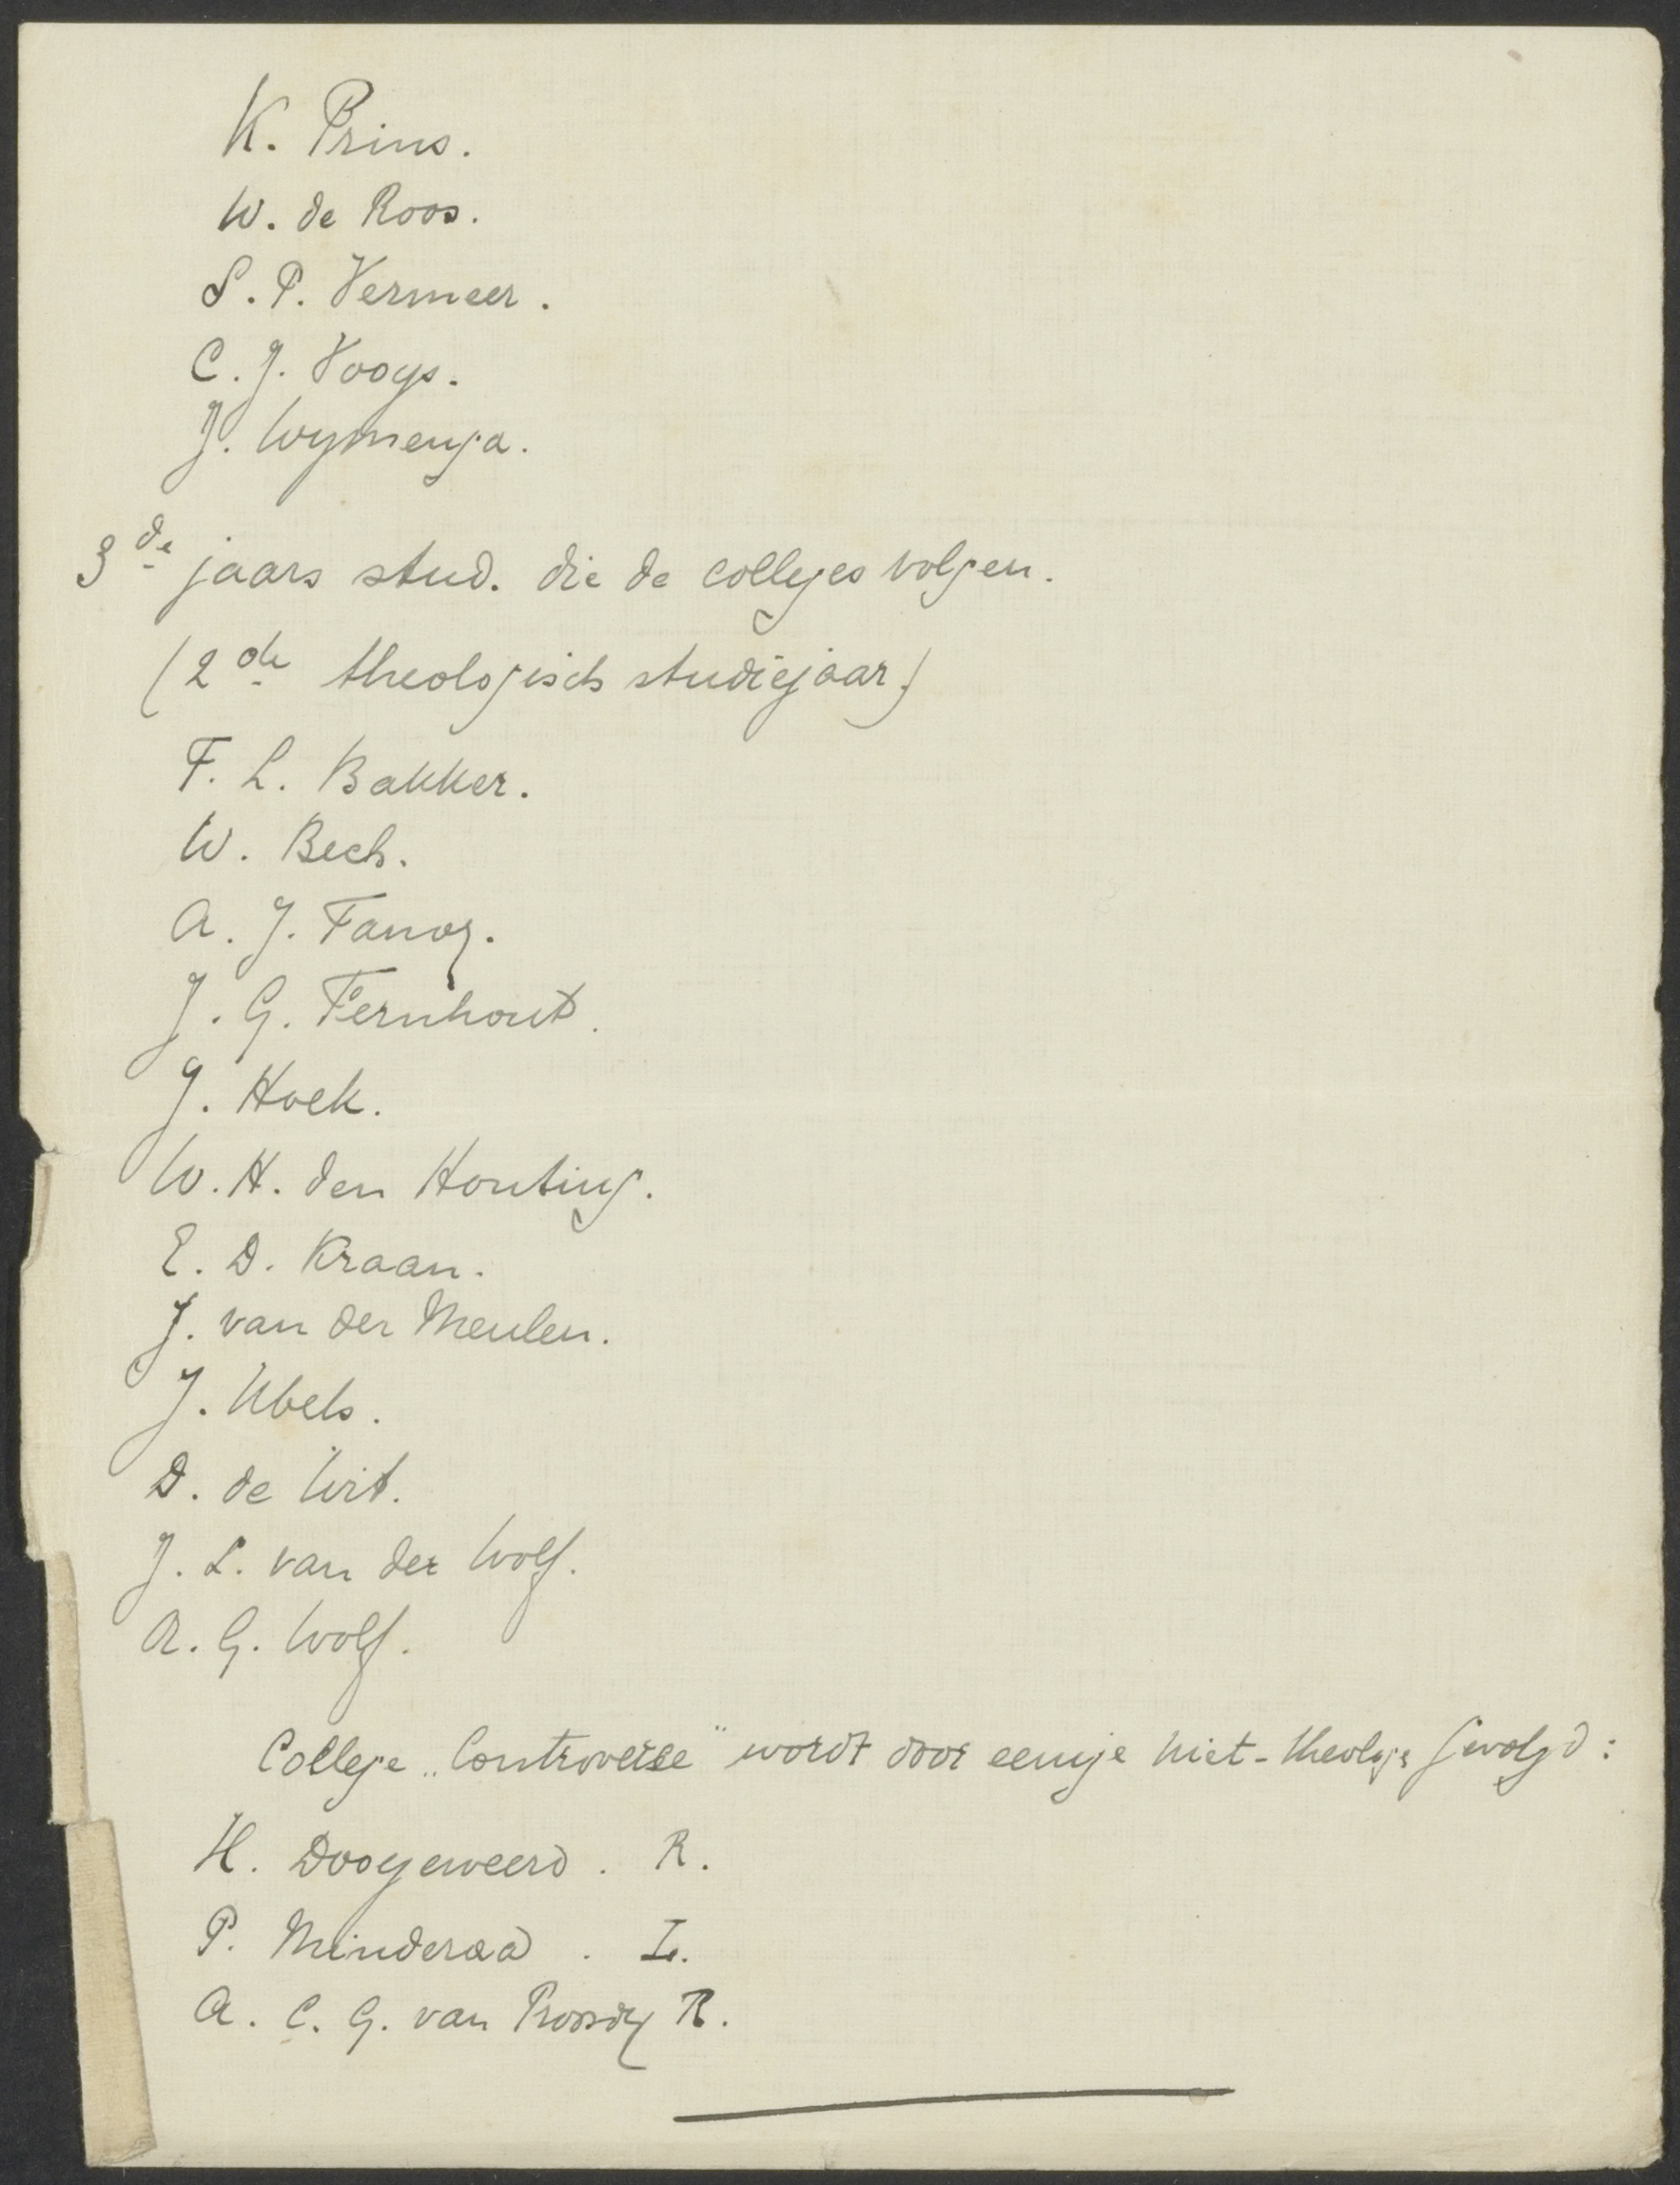 K. Prins.
W. de Roos.
S. P. Vermeer.
C. J. Vooys.
J. Wymenga.
3de jaars stud. die de colleges volgen.
(2de theologisch studiejaar)
F. L. Bakker.
W. Bech.
A. J. Fanoy.
J. G. Fernhout.
J. Hoek.
W. H. den Houting.
E. D. Kraan.
J. van der Meulen.
J. Ubels.
D. de Wit.
J. L. van der Wolf.
R. G. Wolf.
College „Controverse" wordt door eenige niet-theologe gevolgd:
H. Dooyeweerd. R.
P. Minderaa. L.
A. C. G. van Proosdy R.